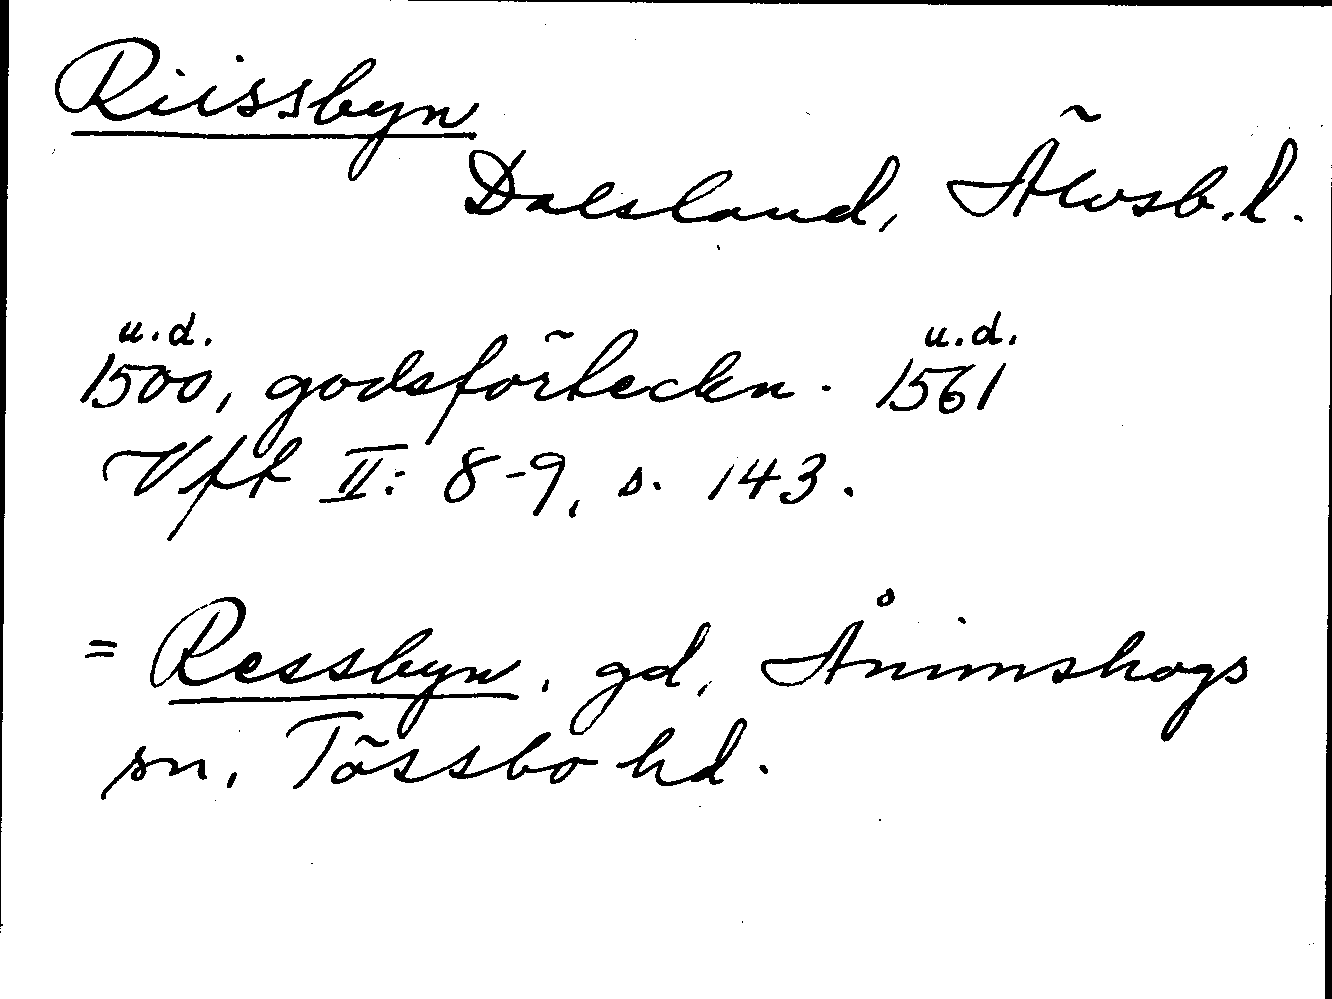 Riissbyn
Dalsland, Älvsb.l.
u.d. u.d.
1500, godsförteckn. 1561
Vft II: 8-9, s. 143.
= Ressbyn, gd, Ånimskogs
sn, Tössbo hd.